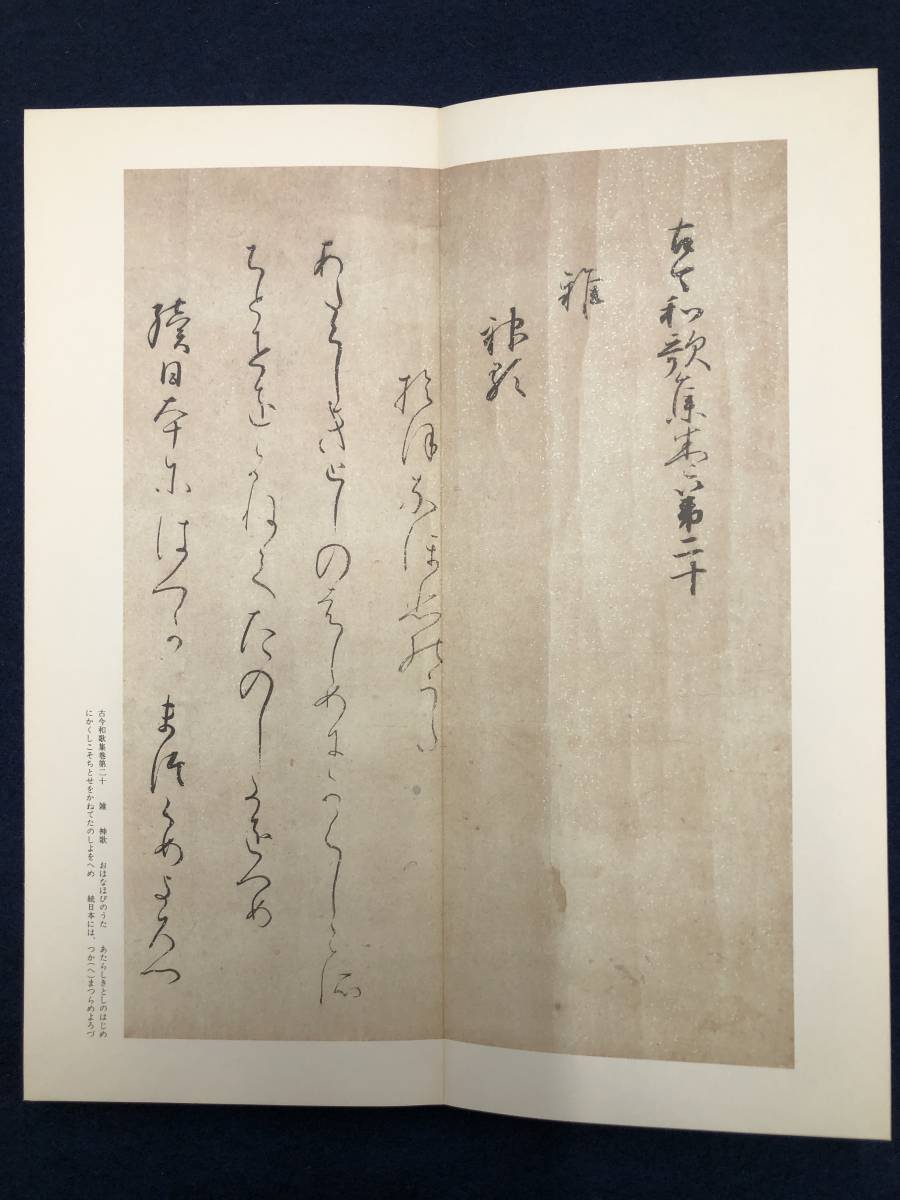 古今和歌集巻第二十
雑
神歌
おほなほひのうた
あたらしきとしのはしめにかくしこそ
ちとせをかねてたのしよをへめ
續日本にはつか まつらめよろつ
古今和歌集巻第二十 雑 神歌 おほなほびのうた あたらしきとしのはじめ
にかくしこそちとせをかねてたのしよをへめ 続日本には、つか(へ)まつらめよろづ